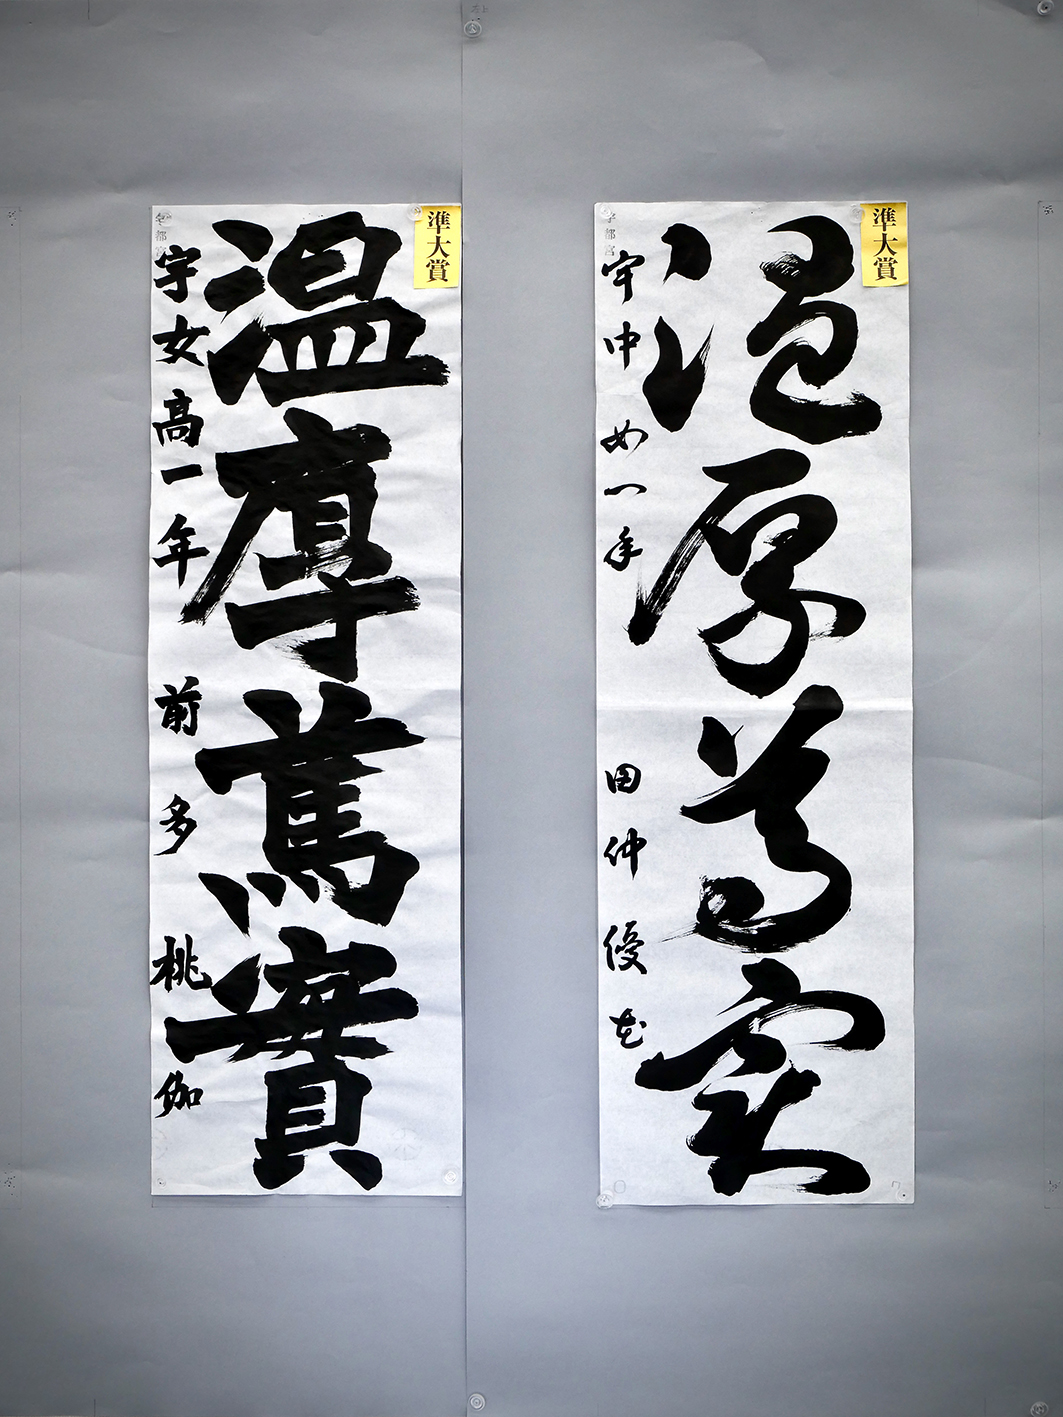 準大賞
温厚篤実
宇中女一年 田仲優花
宇都宮
準大賞
温厚篤實
宇女高一年 前多桃伽
宇都宮